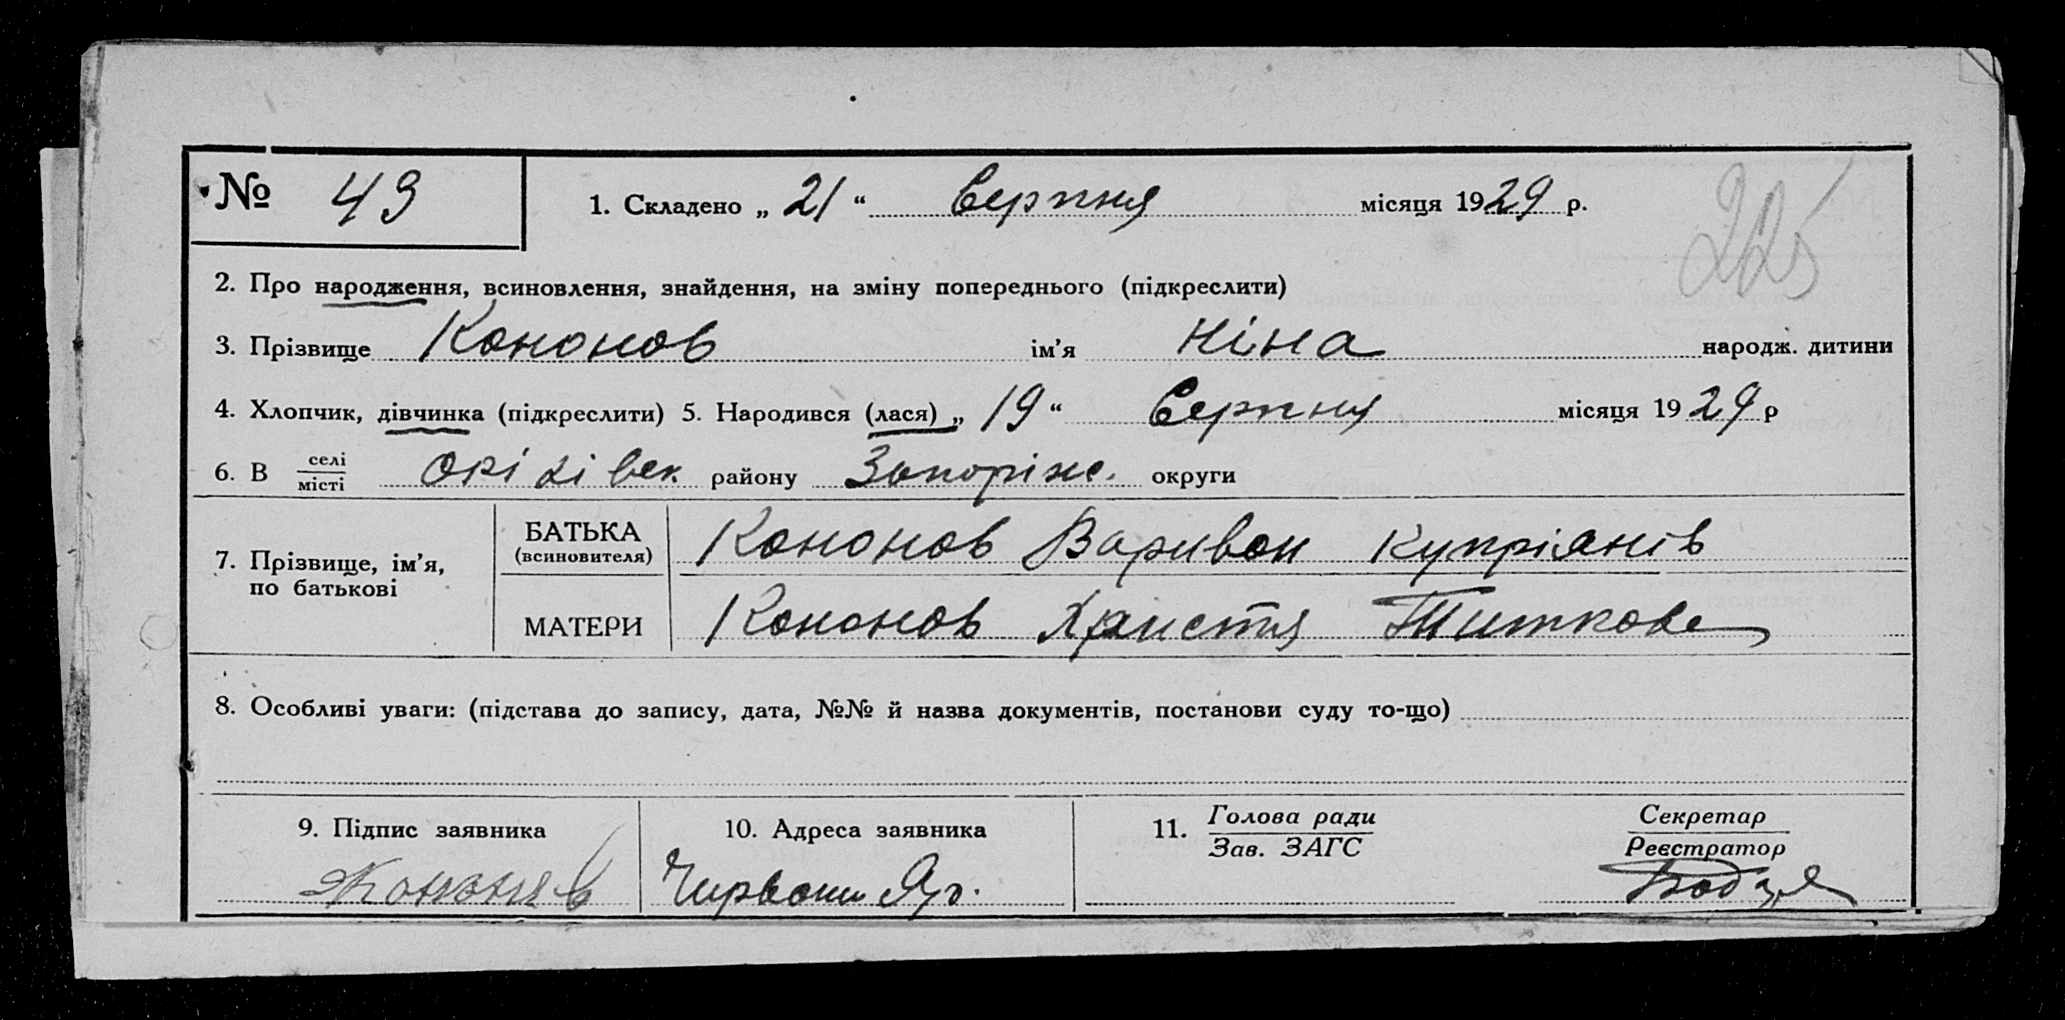 № 43 1. Складено „ 21 “ Серпня місяця 1929 р.
225
2. Про народження, всиновлення, знайдення, на зміну попереднього (підкреслити)
3. Прізвище Кононов ім’я Ніна народж. дитини
4. Хлопчик, дівчинка (підкреслити) 5. Народився (лася) „ 19 “ Серпня місяця 1929 р
6. В селі місті Орі хі вск. району Запоріж. округи
7. Прізвище, ім’я, по батькові
БАТЬКА (всиновителя) Кононов Варивон Купріянів
МАТЕРИ Кононов Христя Титкова
8. Особливі уваги: (підстава до запису, дата, №№ й назва документів, постанови суду то-що)
9. Підпис заявника 10. Адреса заявника 11. Голова ради Зав. ЗАГС Секретар Реєстратор
Кононов Червони Яр.